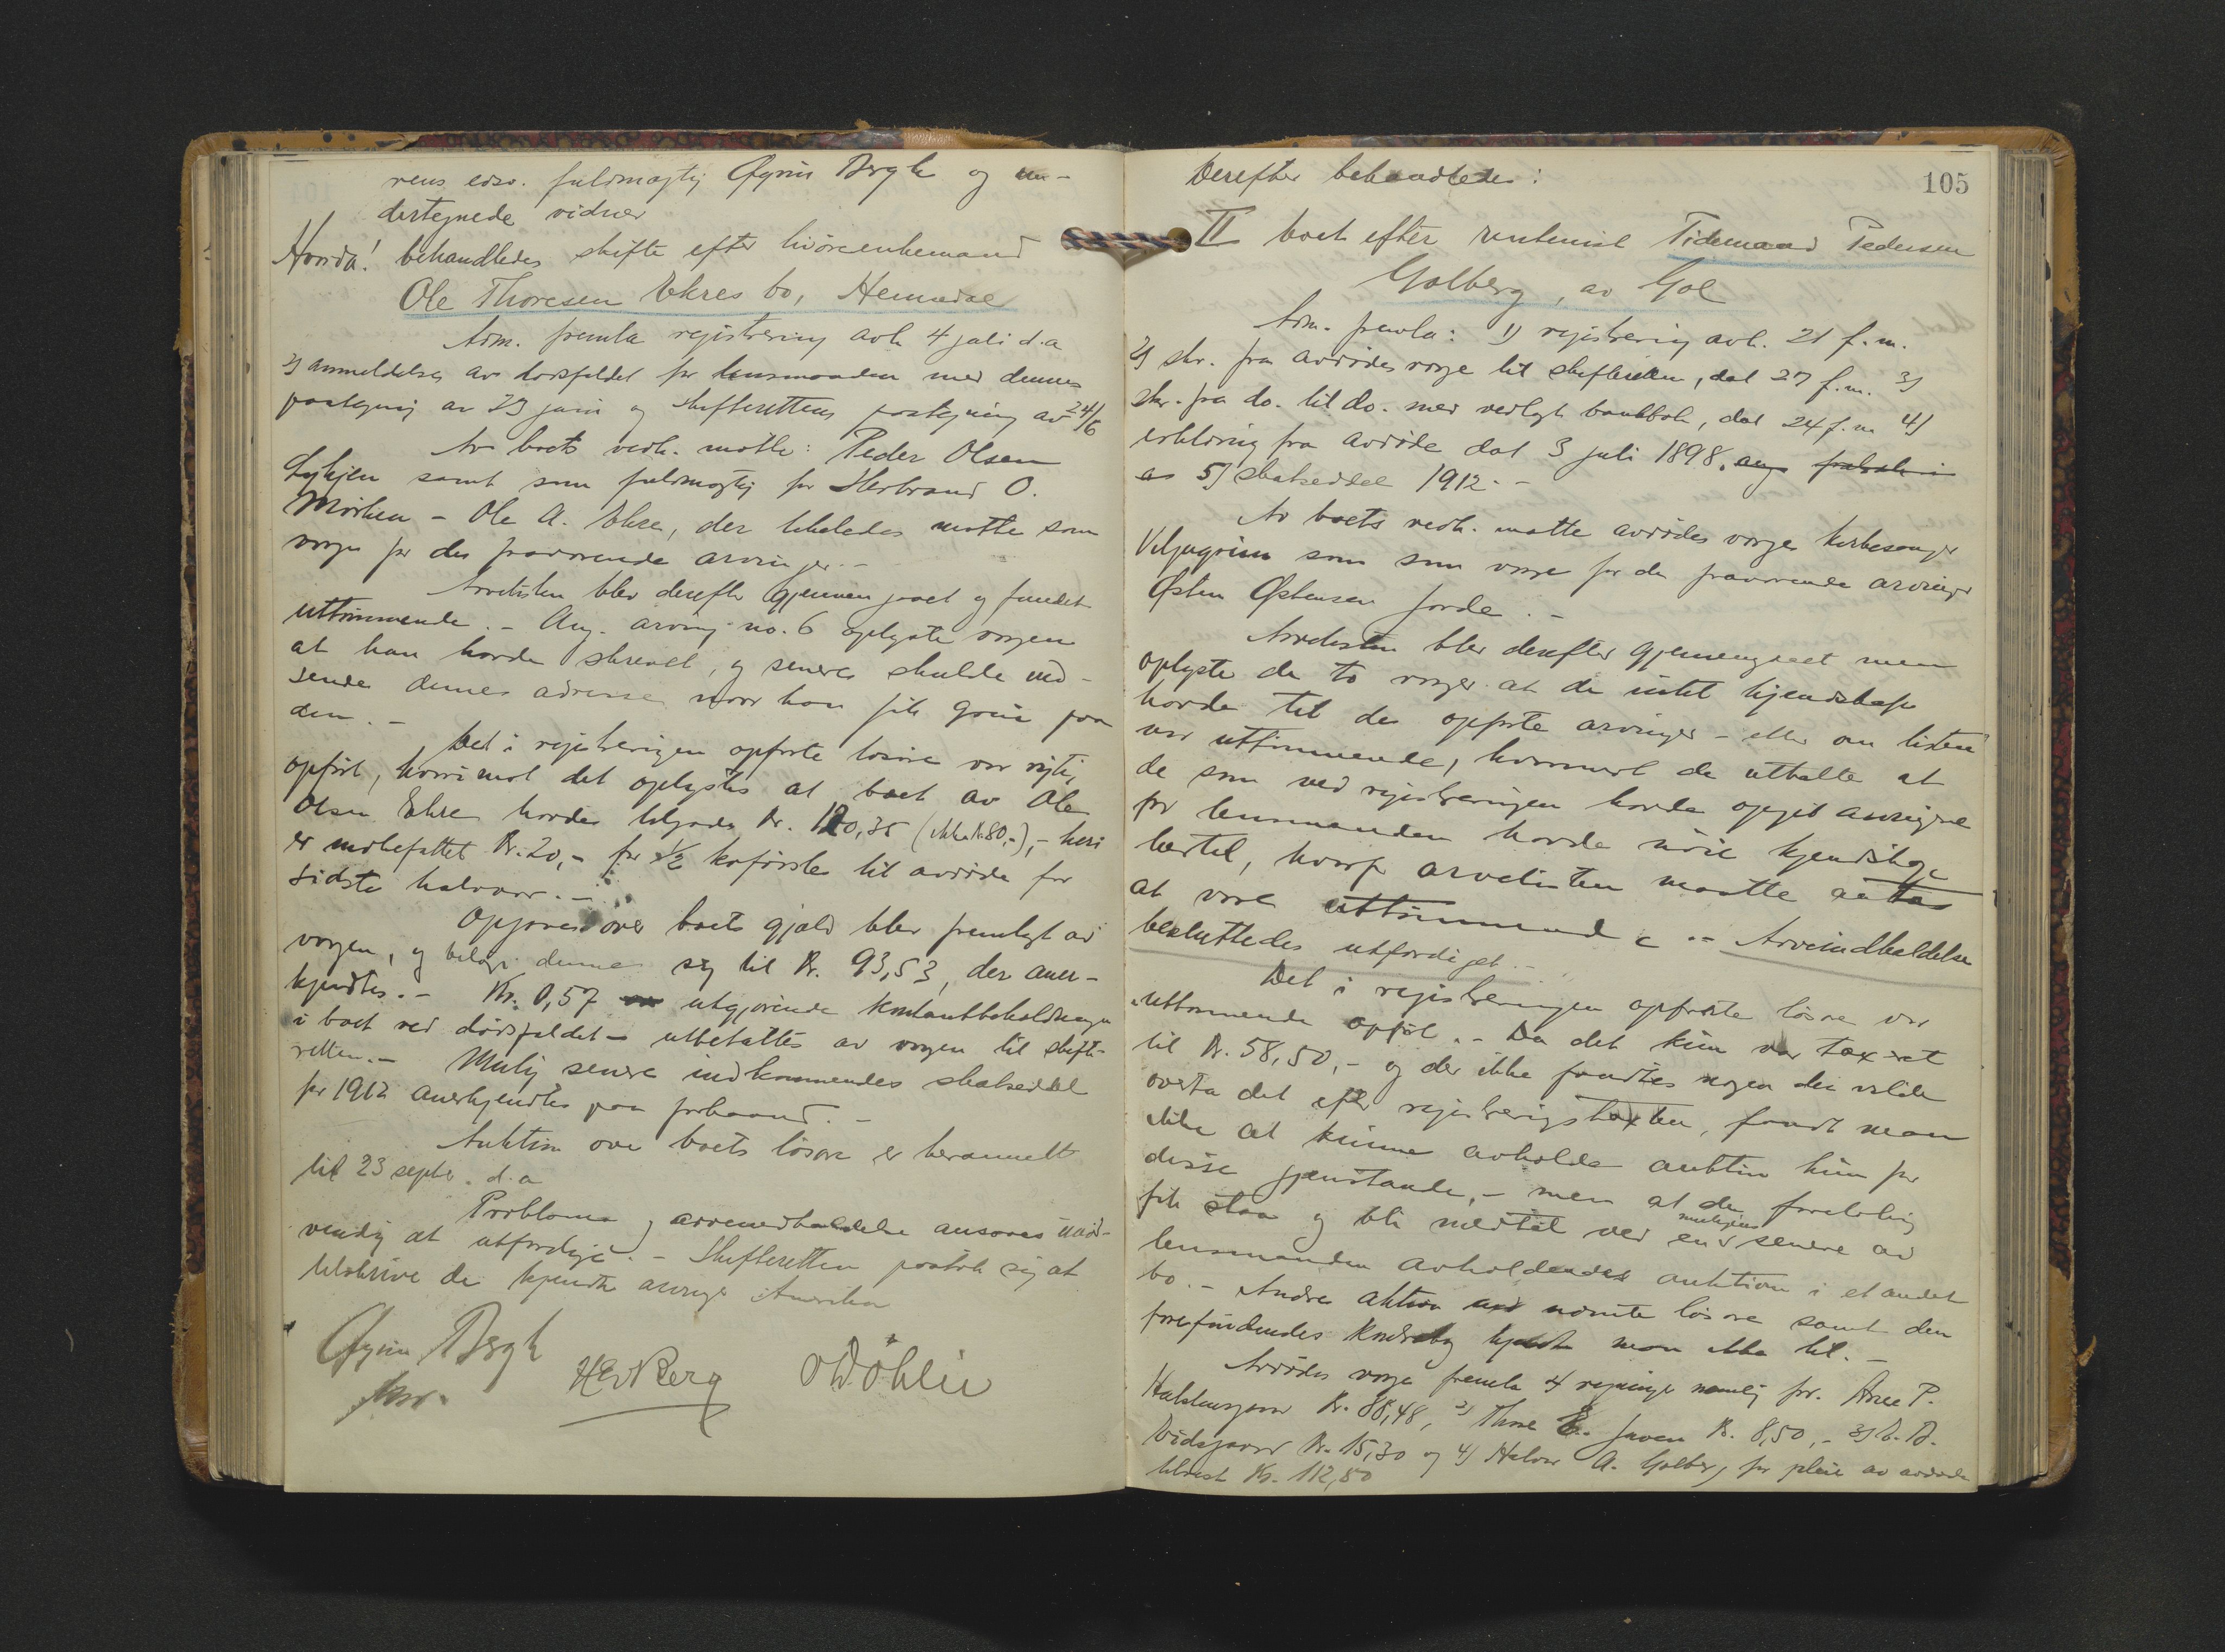 rens edsv. fuldmægtig Øyvin Bergh og un-
dertegnede vidner
Hvorda! behandledes skifte efter livöreenkemand
Ole Thoresen Ekres bo, Hemsedal
Adm. fremla registrering avh. 4 juli d.a
2) anmeldelse av dødsfaldet fra lensmanden med dennes
paategning av 23 juni og skifterettens paategning av 24/6
Av boets vedk. møtte: Peder Olsen
samt som fuldmægtig for Herbrand O.
Mörken – Ole A. Ekre, der likeledes møtte som
verge for de fraværende arvinger. –
Arvelisten blev derefter gjennemgaaet og fundet
uttömmende. – Ang. arving no. 6 oplyste vergen
at han havde skrevet, og senere skulde ind-
sende dennes adresse naar han fik greie paa
den. –
Det i registreringen opførte løsøre var rigtig
opført, hvorimot det oplystes at boet av Ole
Olsen Ekre havde tilgode Kr. 120,35 (ikke K. 80,-), – heri
er indbefattet Kr. 20,- for 1/2 koförsle til avdöde for
sidste halvaar. –
Opgave over boets gjæld blev fremlagt av
vergen, og beløp denne sig til Kr. 93,53, der aner-
kjendtes. – Kr. 0,57 utgjørende kontantbeholdningen
i boet ved dödsfaldet – utbetaltes av vergen til skifte-
retten. – Mulig senere indkommendes skatseddel
for 1912 anerkjendtes paa forhaand. –
Auktion over boets lösøre er berammet
til 23 septbr. d.a
Proklama og arveindkaldelse ansaaes unød-
vendig at utfærdige. – Skifteretten paatok sig at
tilskrive de kjendte arvinger i Amerika
Øyvin Bergh
HEvBerg ODöhlie
105
Derefter behandledes:
II boet efter rentenist Tidemand Pedersen
Golberg, av Gol
Adm. fremla: 1) registrering avh. 21 f.m.
2) skr. fra avdödes verge til skifteretten, dat 27 f.m. 3)
skr. fra do. til do. med vedlagt bankbok, dat 24 f.m 4)
erklæring fra avdöde dat 3 juli 1898, ang
5) skatseddel 1912. –
Av boets vedk. møtte avdödes verge kirkesanger
Viljugrein samt som verge for de fraværende arvinger
Østen Østensen Jorde. –
Arvelisten blev derefter gjennemgaaet men
oplyste de to verger at de intet kjendskap
havde til de opførte arvinger – eller om listen
var uttömmende, hvorimot de uttalte at
de som ved registreringen havde opgit arvingene
for lensmanden havde nöie kjendskap
dertil, hvorfor arvelisten maatte antas
at være uttömmende. – Arveindkaldelse
besluttedes utfærdiget. –
Det i registreringen opførte lösøre var
uttömmende opført. – Da det kun var taxeret
til Kr. 58,50,- og der ikke fandtes nogen der vilde
overta det efter registreringstaxten, fandt man
ikke at kunne avholde auktion kun for
disse gjenstande, – men at de foreløbig
fik staa og bli medtat ved en muligens senere av
lensmanden avholdendes auktion i et andet
bo. – Andre aktiva end nævnte lösøre samt den
forefindendes bankbok kjendte man ikke til. –
Avdödes verge fremla 4 regninger nemlig fra Arne P.
Halstensgaard Kr. 86,48, 2) Thore E. Juven K. 8,50, – 3)
Kr. 15,30 og 4) Halvor A. Golberg for pleie av avdöde
tilsist Kr. 112,50